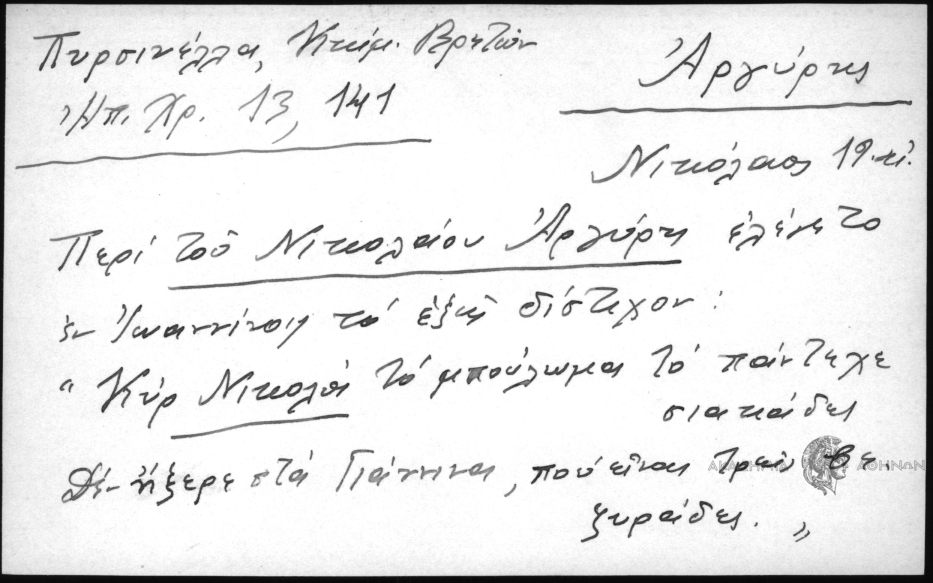 Πυρσινέλλα, Κτίμ. Βρετών
Ἠπ. Χρ. 13, 141
Ἀργύρης
Νικόλαος 19. αἰ.
Περί τοῦ Νικολαίου Ἀργύρη ἐλέγετο
ἐν Ἰωαννίνοις τό ἑξῆς δίστιχον :
" Κύρ Νικολά τό μπούλωμα τό πάντεχε
σιακάδες
Δέν ἤξερε στά Γιάννινα, πού εἶναι τρεῖς βε.
ζυράδες. "
ΑΚΑΔΗΜΙΑ ΑΘΗΝΩΝ